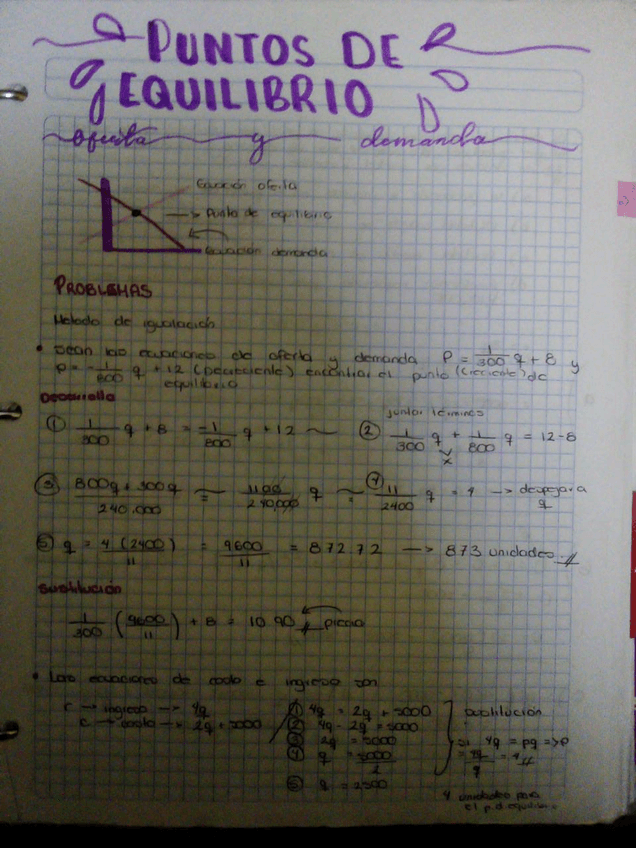 PUNTOS DE
EQUILIBRIO
oferta y demanda
Ecuación oferta
→ Punto de equilibrio
Ecuación demanda
PROBLEMAS
Metodo de igualación
• Sean las ecuaciones de oferta y demanda P = 1/300 q + 8 y
P = -1/800 q + 12 (Decreciente) encontrar el punto (creciente) de
equilibrio
Desarrollo
juntar términos
① 1/300 q + 8 = -1/800 q + 12 ~ ② 1/300 q + 1/800 q = 12-8
x
③ 800q + 300q / 240,000 ~ 1100/240,000 q ~ ④ 11/2400 q = 4 → despejar a
q
⑤ q = 4(2400)/11 = 9600/11 = 872.72 → 873 unidades
Sustitución
1/300 (9600/11) + 8 = 10.90 precio
• Las ecuaciones de costo e ingreso son
r → ingreso → 4q
c → costo → 2q + 5000
① 4q = 2q + 5000
② 4q - 2q = 5000
③ 2q = 5000
④ q = 5000/2
⑤ q = 2500
sustitución
si 4q = pq => p
= 4q/q = 4
4 unidades para
el p.d equilibrio